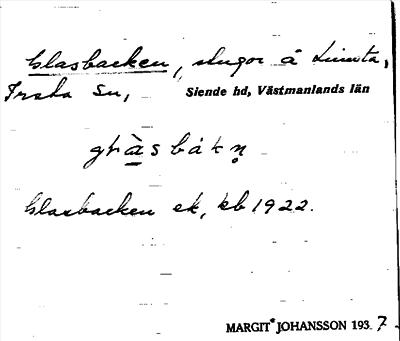 Glasbacken, stugor å Limsta,
Irsta sn, Siende hd, Västmanlands län
glàsbákn̥
Glasbacken ek, kb 1922.
MARGIT JOHANSSON 1937